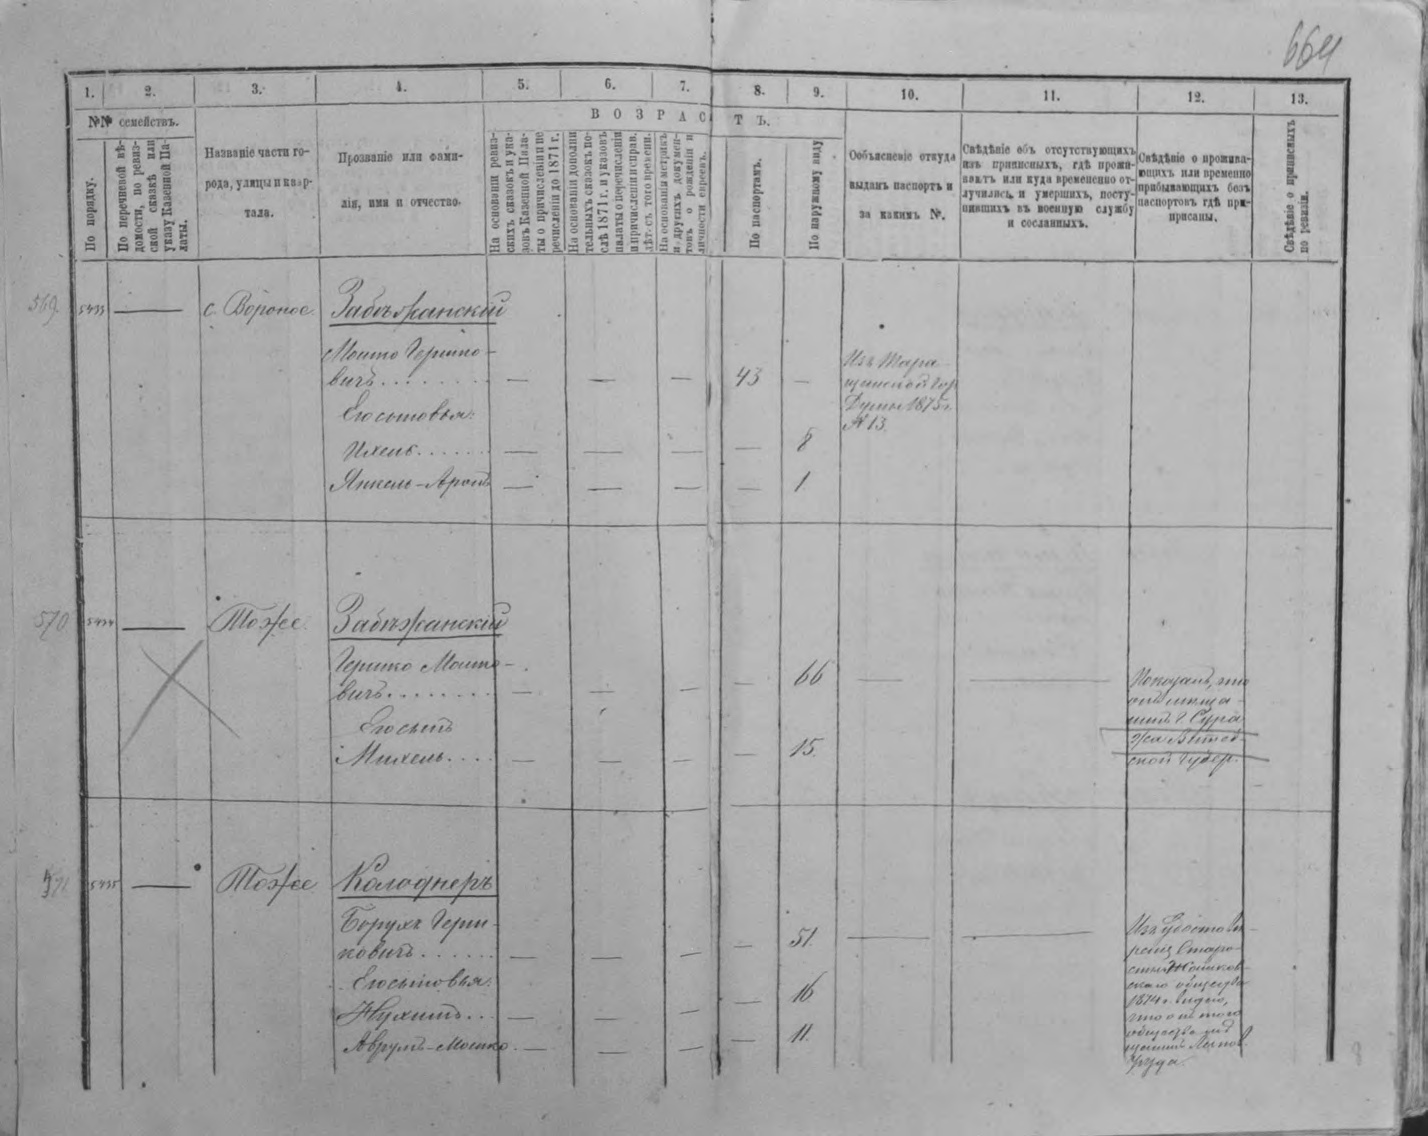 664
1.
2.
3.
4.
5.
6.
7.
8.
9.
10.
11.
12.
13.
№№ семействъ.
ВОЗРАСТЪ.
По порядку.
По перечневой вѣ-
домости, по ревиз-
ской сказкѣ или
указу Казенной Па-
латы.
Названіе части го-
рода, улицы и квар-
тала.
Прозваніе или фами-
лія, имя и отчество.
На основаніи ревиз-
скихъ сказокъ и ука-
зовъ Казенной Пала-
ты о причисленіи и пе
речисленіи до 1871 г.
На основаніи дополни
тельныхъ сказокъ по-
слѣ 1871 г. и указовъ
палаты о перечисленіи
и причисленіи и справ.
лѣтъ съ того времени.
На основаніи метрикъ
и другихъ докумен-
товъ о рожденіи и
личности евреевъ.
По паспортамъ.
По наружному виду
Ообъясненіе откуда
выданъ паспортъ и
за какимъ №.
Свѣдѣніе объ отсутствующихъ
изъ приписныхъ, гдѣ прожи-
ваютъ или куда временно от-
лучились, и умершихъ, посту-
пившихъ въ военную службу
и сосланныхъ.
Свѣдѣніе о прожива-
ющихъ или временно
прибывающихъ безъ
паспортовъ гдѣ при-
приcаны.
Свѣдѣніе о приписныхъ
по ревизіи.
569.
5433
с. Вороное.
Забѣжанскій
Мошко Гершко-
вичъ . . . . . . . .
43
Изъ Тара-
щанской Гор
Думы 1875 г.
№ 13.
Его сыновья:
Ихель . . . . . .
8
Янкель-Аронъ
1
570
5434
Тоже.
Забѣжанскій
Гершко Мошко-
вичъ . . . . . . . .
66
Показалъ, что
онъ мѣща-
нинъ г. Сура-
жа Витеб-
ской Губер.
Его сынъ
Михель . . . .
15.
571
5435
Тоже
Колоднеръ
Борухъ Герш-
ковичъ . . . . . .
51.
Его сыновья:
Нухимъ . . .
16
Аврумъ-Мошко.
11.
Изъ удостовѣ-
ренія Старо-
сты Жашков-
скаго общества
1874 г. видно,
что онъ того
общества